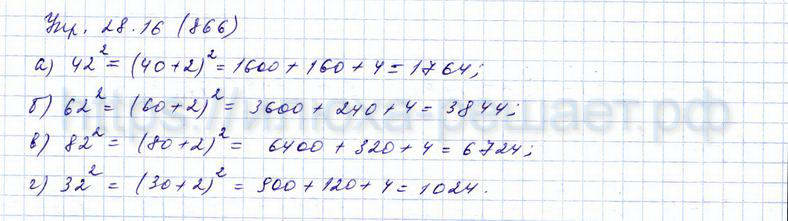 Упр. 28.16 (866)
а) 42² = (40+2)² = 1600 + 160 + 4 = 1764;
б) 62² = (60+2)² = 3600 + 240 + 4 = 3844;
в) 82² = (80+2)² = 6400 + 320 + 4 = 6724;
г) 32² = (30+2)² = 900 + 120 + 4 = 1024.